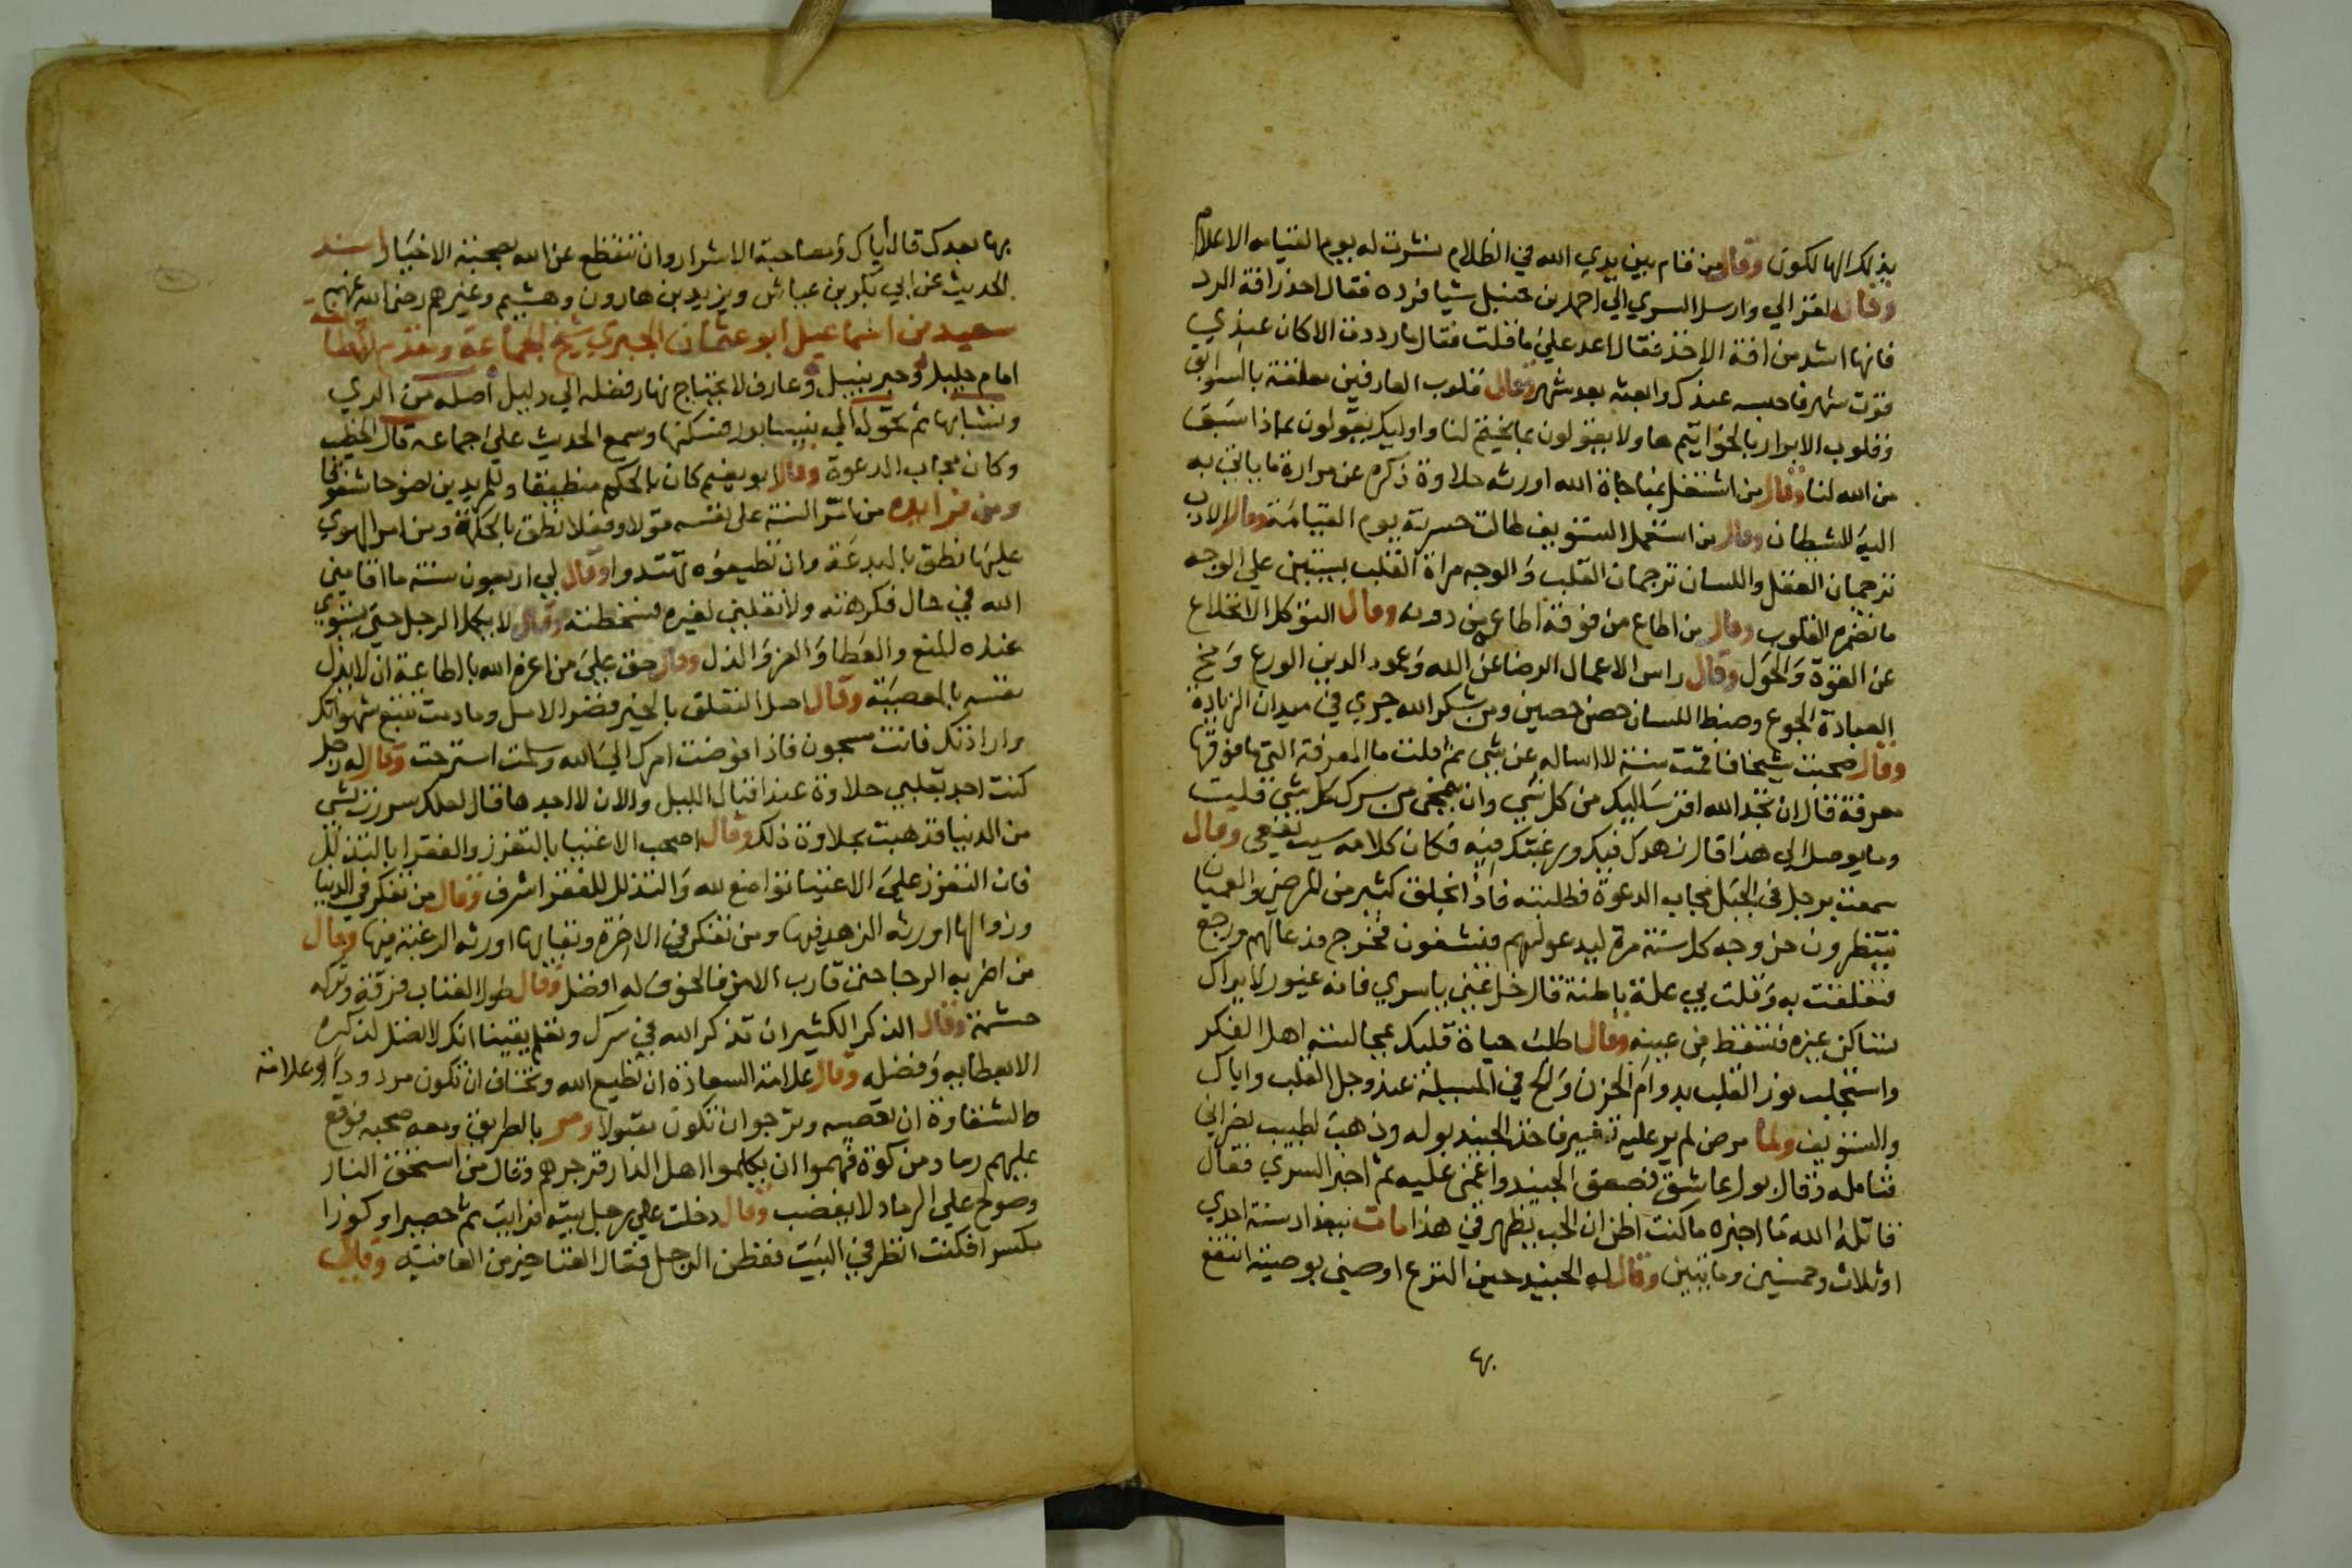 بذلك الهالكون وقال من قام بين يدي الله في الظلام نشرت له يوم القيامه الاعلام
وقال لغزالي وارسل السري الي احمد بن حنبل شيا فرده فقال احذر افة الرد
فانها اشد من افة الاخذ فقال اعد علي ما قلت فقال ما رددت الا كان عندي
قوت شهر فاحبسه عندك وابعثه بعد شهر وقال قلوب العارفين معلقة بالسوابق
وقلوب الابرار بالخواتيم هاولا يقولون بما يختم لنا واوليك يقولون بماذا سبق
من الله لنا وقال من اشتغل بمناجاة الله اورثه حلاوة ذكره عن مرارة ما ياتي به
اليه الشيطان وقال من استعمل التسويف طالت حسرته يوم القيامة وقال الادب
ترجمان العقل واللسان ترجمان القلب والوجه مراة القلب يستبين علي الوجه
ما تضمره القلوب وقال من اطاع من فوقه اطاعه من دونه وقال التوكل الانخلاع
عن القوة والحول وقال راس الاعمال الرضا عن الله وعمود الدين الورع ومخ
العبادة الجوع وضبط اللسان حصن حصين ومن شكر الله جري في ميدان الزيادة
وقال صحبت شيخا فاقمت سنة لا اساله عن شي ثم قلت ما المعرفة التي ما فوقها
معرفة قال ان تجد الله اقرب اليك من كل شي وان يمحي من سرك كل شي قلت
وما يوصل الي هذا قال زهدك فيك ورغبتك فيه فكان كلامه سبب نفعي وقال
سمعت برجل في الجبل مجاب الدعوة فطلبته فاذا خلق كثير من المرضي والعميان
ينتظرون خروجه كل سنة مرة ليدعو لهم فيشفون فخرج فدعا لهم ورجع
فتعلقت به وقلت بي علة باطنة قال خل عني يا سري فانه غيور لا يراك
تساكن غيره فتسقط من عينه وقال اطلب حياة قلبك بمجالسة اهل الفكر
واستجلب نور القلب بدوام الحزن والح في المسيلة عند وجل القلب واياك
والتسويف ولما مرض لم ير عليه تغيير فاخذ الجنيد بوله وذهب لطبيب نصراني
فتامله وقال بول عاشق فصعق الجنيد واغمي عليه ثم اخبر السري فقال
قاتله الله ما اخبره ما كنت اظن ان الحب يظهر في هذا مات ببغداد سنة احدي
او ثلاث وخمسين وماتيتين وقال له الجنيد حين النزع اوصني بوصية انتفع
بها
بها بعدك قال اياك ومصاحبة الاشرار وان تنقطع عن الله بصحبة الاخيار اسند
الحديث عن ابي بكر بن عياش ويزيد بن هارون وهشيم وغيرهم رضي الله عنهم
سعيد بن اسماعيل ابو عثمان الحيري شيخ الجماعة ومقدم الطايفة
امام جليل وحبر نبيل وعارف لا يحتاج نهار فضله الي دليل اصله من الري
ونشا بها ثم تحول الي نيسابور فسكنها وسمع الحديث علي جماعه قال الخطيب
وكان مجاب الدعوة وقال ابو نعيم كان بالحكم منطيقا وللمريدين نصوحا شفوقا
ومن فوايده من امر السنة علي نفسه قولا وفعلا نطق بالحكمة ومن امر الهوي
عليها نطق بالبدعة وان تطيعوه تهتدوا وقال لي اربعون سنة ما اقامني
الله في حال فكرهته ولا نقلني لغيره فسخطته وقال لا يكمل الرجل حتي يستوي
عنده المنع والعطا والعز والذل وقال حق علي من اعزه الله بالطاعة ان لا يذل
نفسه بالمعصية وقال اصل التعلق بالخير قصر الامل وما دمت تتبع شهواتك
وارادتك فانت مسجون فاذا فوضت امرك الي الله وسلمت استرحت وقال له رجل
كنت اجد بقلبي حلاوة عند اقبال الليل والان لا اجدها قال لعلك سررت بشي
من الدنيا فذهبت بحلاوة ذلك وقال اصحب الاغنيا بالتعزز والفقرا بالتذلل
فان التعزز علي الاغنيا تواضع لله والتذلل للفقرا شرف وقال من تفكر في الدنيا
وزوالها اورثه الزهد فيها ومن تفكر في الاخرة وبقايها اورثه الرغبة فيها وقال
من اضر به الرجا حتي قارب الامن فالخوف له افضل وقال طول العتاب فرقة وتركه
حشمة وقال الذكر الكثير ان تذكر الله في سرك وتعلم يقينا انك لا تصل لذكره
الا بعطايه وفضله وقال علامة السعادة ان تطيع الله وتخاف ان تكون مردودا وعلامة
الشقاوة ان تعصيه وترجو ان تكون مقبولا ومر بالطريق ومعه صحبه فوقع
عليهم رماد من كوة فهموا ان يكلموا اهل الدار فزجرهم وقال من استحق النار
وصولح علي الرماد لا يغضب وقال دخلت علي رجل بيته فرايت ثم حصيرا وكوزا
مكسرا فكنت انظر في البيت ففطن الرجل فقال القنا خير من العافية وقال